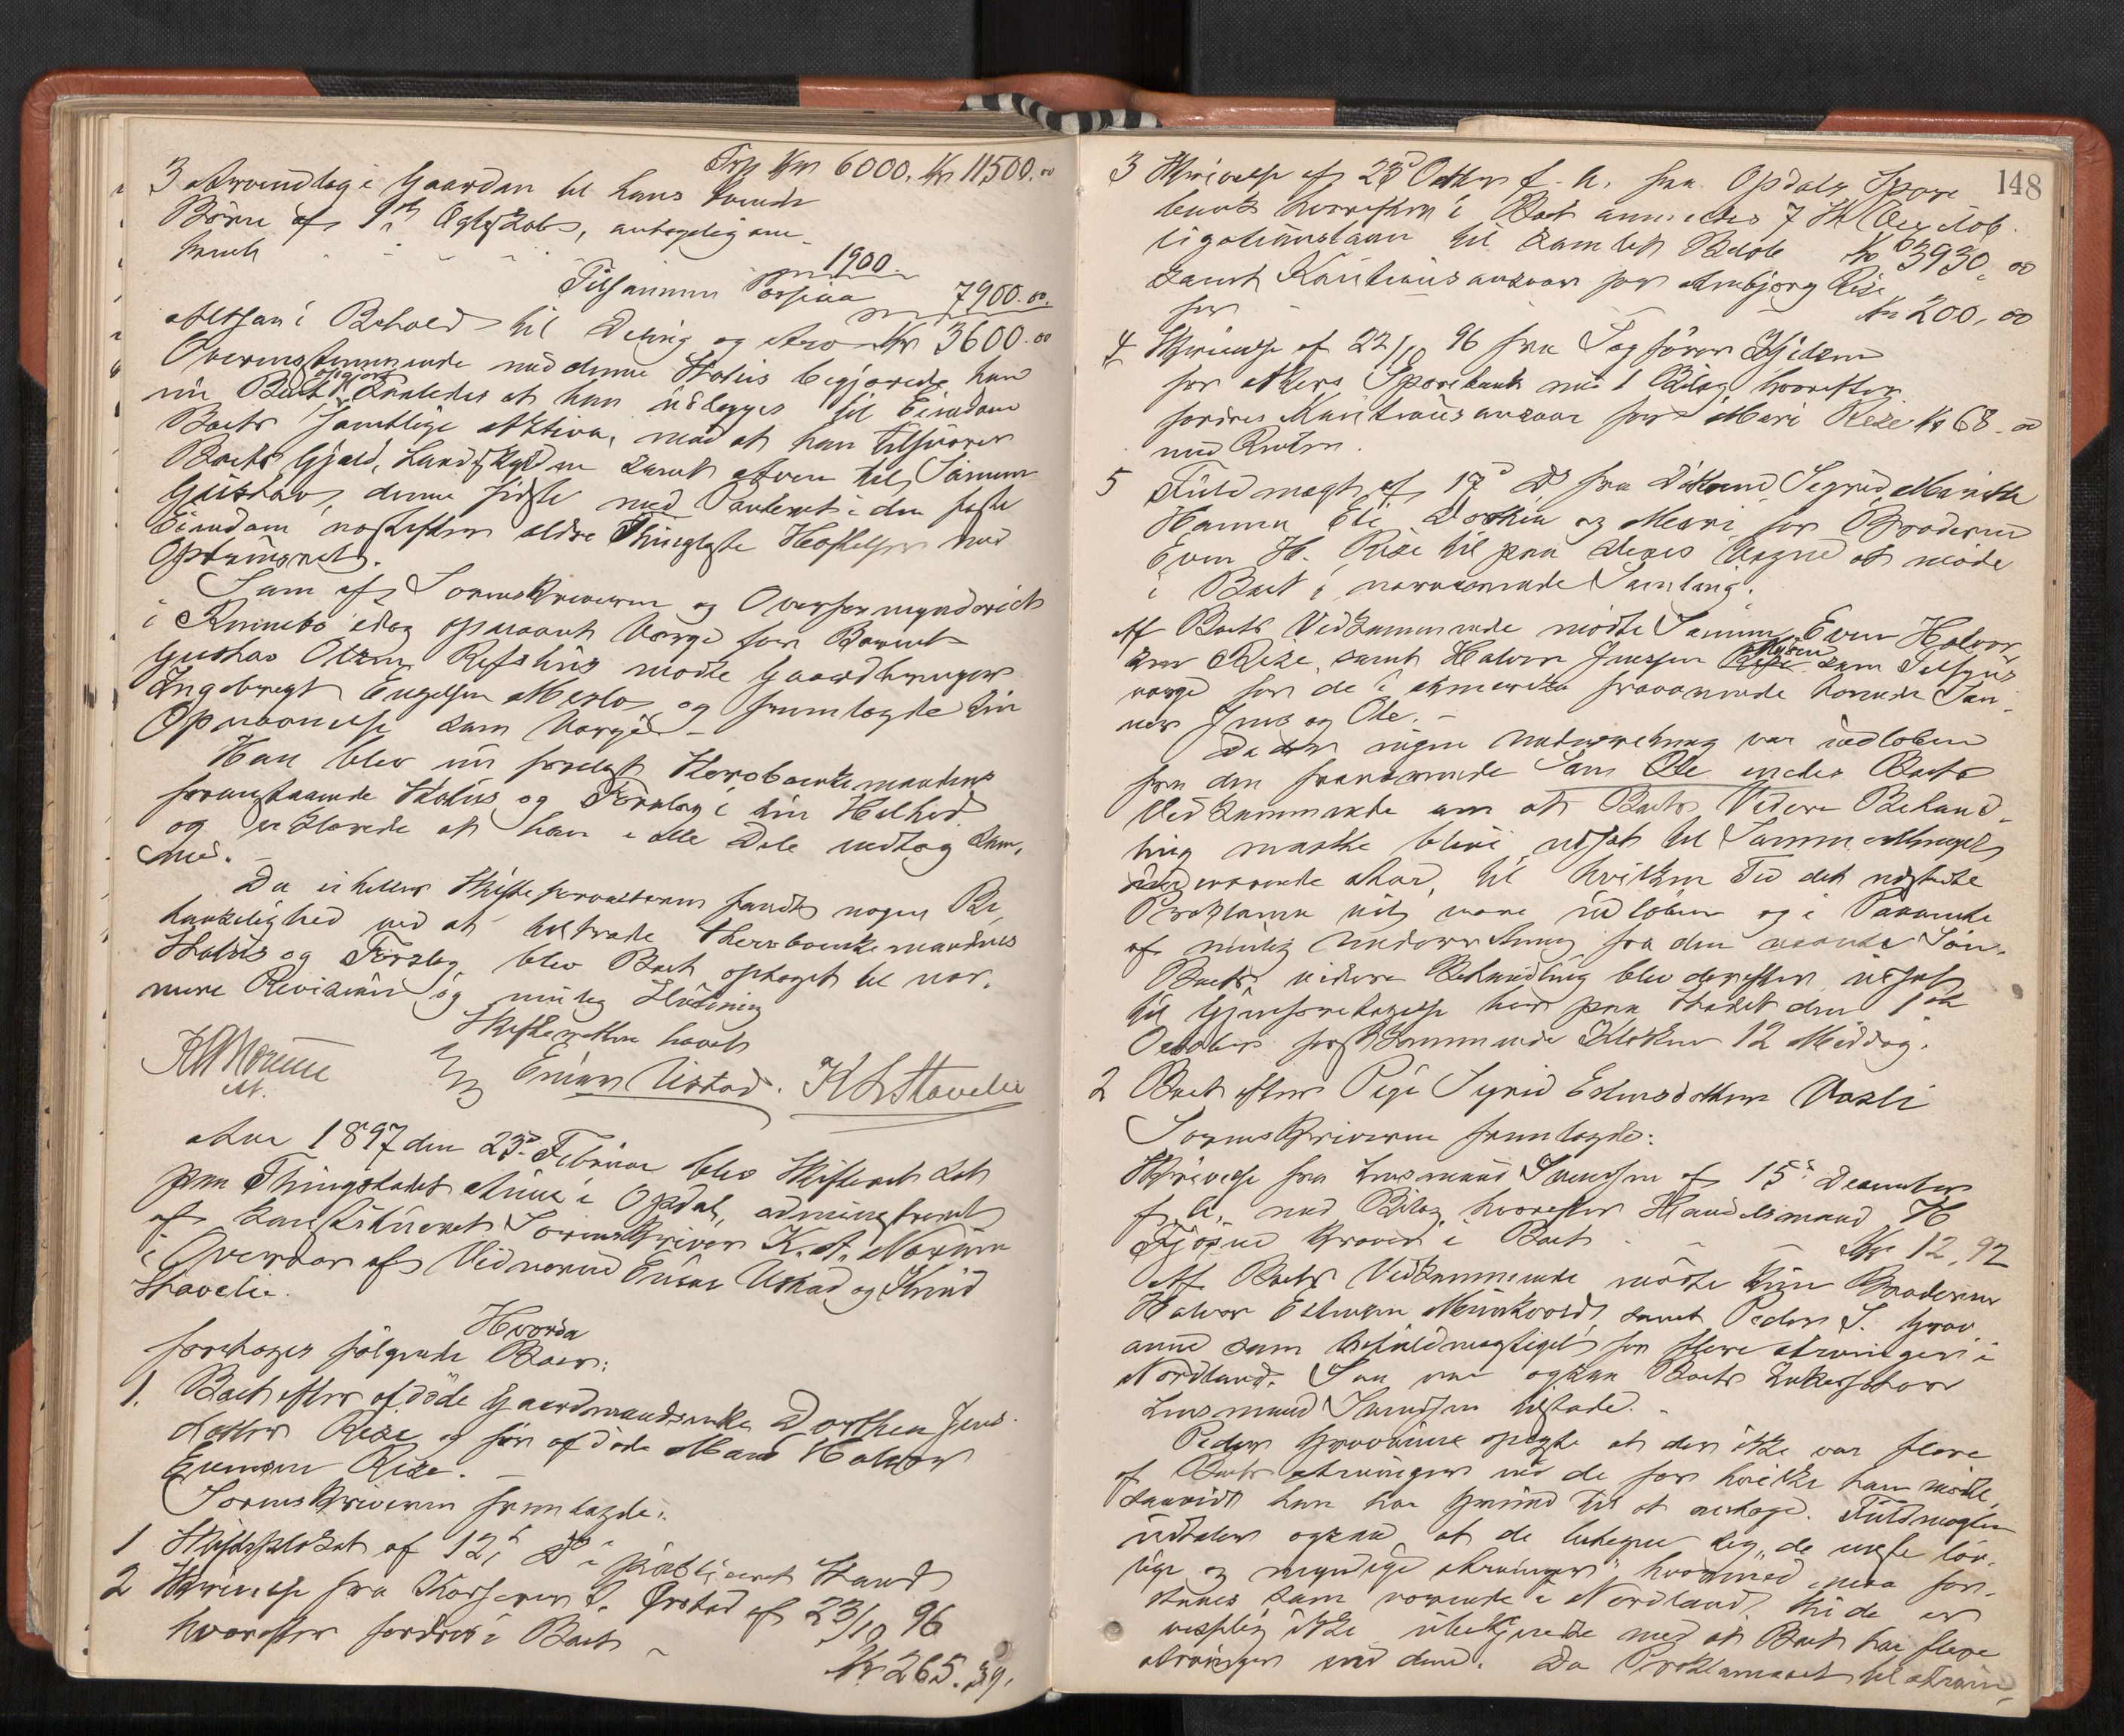 Trp Kr 6000. Kr 11500.00
3 Arvindlæg i Gaarden til hans tvende
Børn af 1ste Ægteskab, antagelig an-
1900.
Tilsammen Passiva 7900.00.
Altsaa i Behold til Deling og Arv Kr 3600.00
Overensstemmende med denne Status begjærede han
nu Boet opgjort saaledes at han udlægges til Eiendom
Boets samtlige Aktiva, mod at han tilsvarer
Boets Gjæld, samt Arven til Sønnen
Gustav, denne sidste med Panteret i den faste
Eiendom næstefter ældre thinglæste Hæftelser med
Optrinsret.
Som af Sorenskriveren og Overformynderiet
i Rennebo idag opnævnt Værge for Barnet
Gustav Olsen Refshus mødte Gaardbruger
Ingebregt Engelsen Merlo og fremlagde sin
Opnævnelse som Værge.
Han blev nu forelagt Stervboenkemandens
foranstaaende Status og Forslag i sin Helhed
og erklærede at han i alle Dele vedtog sam-
me.
Da ei heller Skifteforvalteren fandt nogen Be-
tænkelighed ved at tiltræde Stervboenkemandens
Status og Forslag, blev Boet optaget til nær-
mere Revision og mulig Slutning
Skifteretten hævet
K A Norum
Einar Ustad. K L Stavelie
Aar 1897 den 23de Februar blev Skifteret sat
paa Thingstedet Aune i Opdal, administreret
af konstitueret Sorenskriver K. A. Norum
i Overvær af Vidnerne Einar Ustad og Knud
Stavelie.
Hvorda
foretoges følgende Boer:
1. Boet efter afdøde Gaardmandsenke Dorthea Jens-
datter Rise og før afdøde Mand Halvor
Evensen Rise.
Sorenskriveren fremlagde:
1 Skifteplakat af 12te Ds i publiceret Stand
2 Skrivelse fra Ørstad af 23/10 96
hvorefter fordres i Boet
Kr 265.39.
148
3 Skrivelse af 23d October f. A. fra Opdals Spare-
bank hvorefter i Boet anmeldes 7 St Vexelob-
ligationslaan til samlet Beløb Kr 3930,00
samt Kautionsansvar for Ambjørg Rise
for Kr 200,00
4 Skrivelse af 22/10 96 fra Sagfører
for Akers Sparebank med 1 Bilag hvorefter
fordres Kautionsansvar for Mari Rise Kr 68.00
med Renter.
5 Fuldmagt af 17d Ds fra Døttrene Sigrid, Marith
Hanna Eli Dorthea og Mari for Broderen
Even H. Rise til paa deres Vegne at møde
i Boet i nærværende Samling.
Af Boets Vedkommende mødte Sønnen Even Halvor-
sen Rise, samt Halvor Jenssen som Tilsyns-
værge for de i Amerika fraværende tvende Søn-
ner Jens og Ole.
Da der ingen Underretning var indløben
fra den fraværende Søn Ole endes Boets
Vedkommende om at Boets videre Behand-
ling maatte blive udsat til Sommer
indeværende Aar, til hvilken Tid det udstedte
Proklama vil være udløben og i Paavente
af mulig Underretning fra den nævnte Søn.
Boets videre Behandling blev derefter udsat
til Gjenforetagelse her paa Stedet den 1ste
October førstkommende Klokken 12 Middag.
2 Boet efter Pige Sigrid Estensdatter Vasli
Sorenskriveren fremlagde:
Skrivelse fra Lensmand af 15de December
f. A. med Bilag hvorefter Handelsmand H
Fjøsne kræver i Boet Kr 12,92
Af Boets Vedkommende mødte kun Broderen
Halvor Estensen samt Peder S. Grøv-
anne som befuldmægtiget for flere Arvinger i
Nordland. Saa var ogsaa Boets Inkassator
Lensmand tilstede.
Peder oplyste at der ikke var flere
af Boets Arvinger end de for hvilke han mødte,
saavidt han har Grund til at antage. Fuldmagten
udtaler ogsaa at de betegner sig "de eneste lov-
lige og myndige Arvinger" hvormed maa for-
staaes som værende i Nordland, thi de er
ikke ubekjendte med at Boet har flere
Arvinger end dem. Da Proklamaet til Arvin-